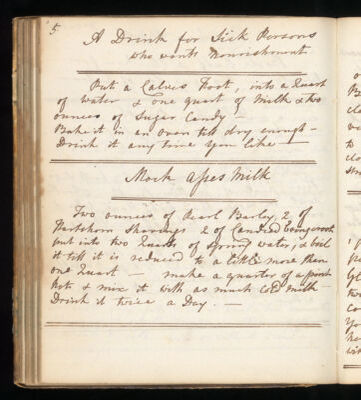 5
A Drink for Sick Persons
who wants Nourishment
Put a Calves Foot, into a Quart
of Water & one quart of Milk & two
ounces of Sugar Candy —
Bake it in an Oven till dry enough —
Drink it any time you like —
Mock Asses Milk
Two ounces of Pearl Barley, 2 of
Hartshorn Shavings 2 of Candied Eringo root
put into two Quarts of Spring water, & boil
it till it is reduced to a little more than
one Quart — make a quarter of a pint
hot & mix it with as much Cold Milk —
Drink it twice a Day. —